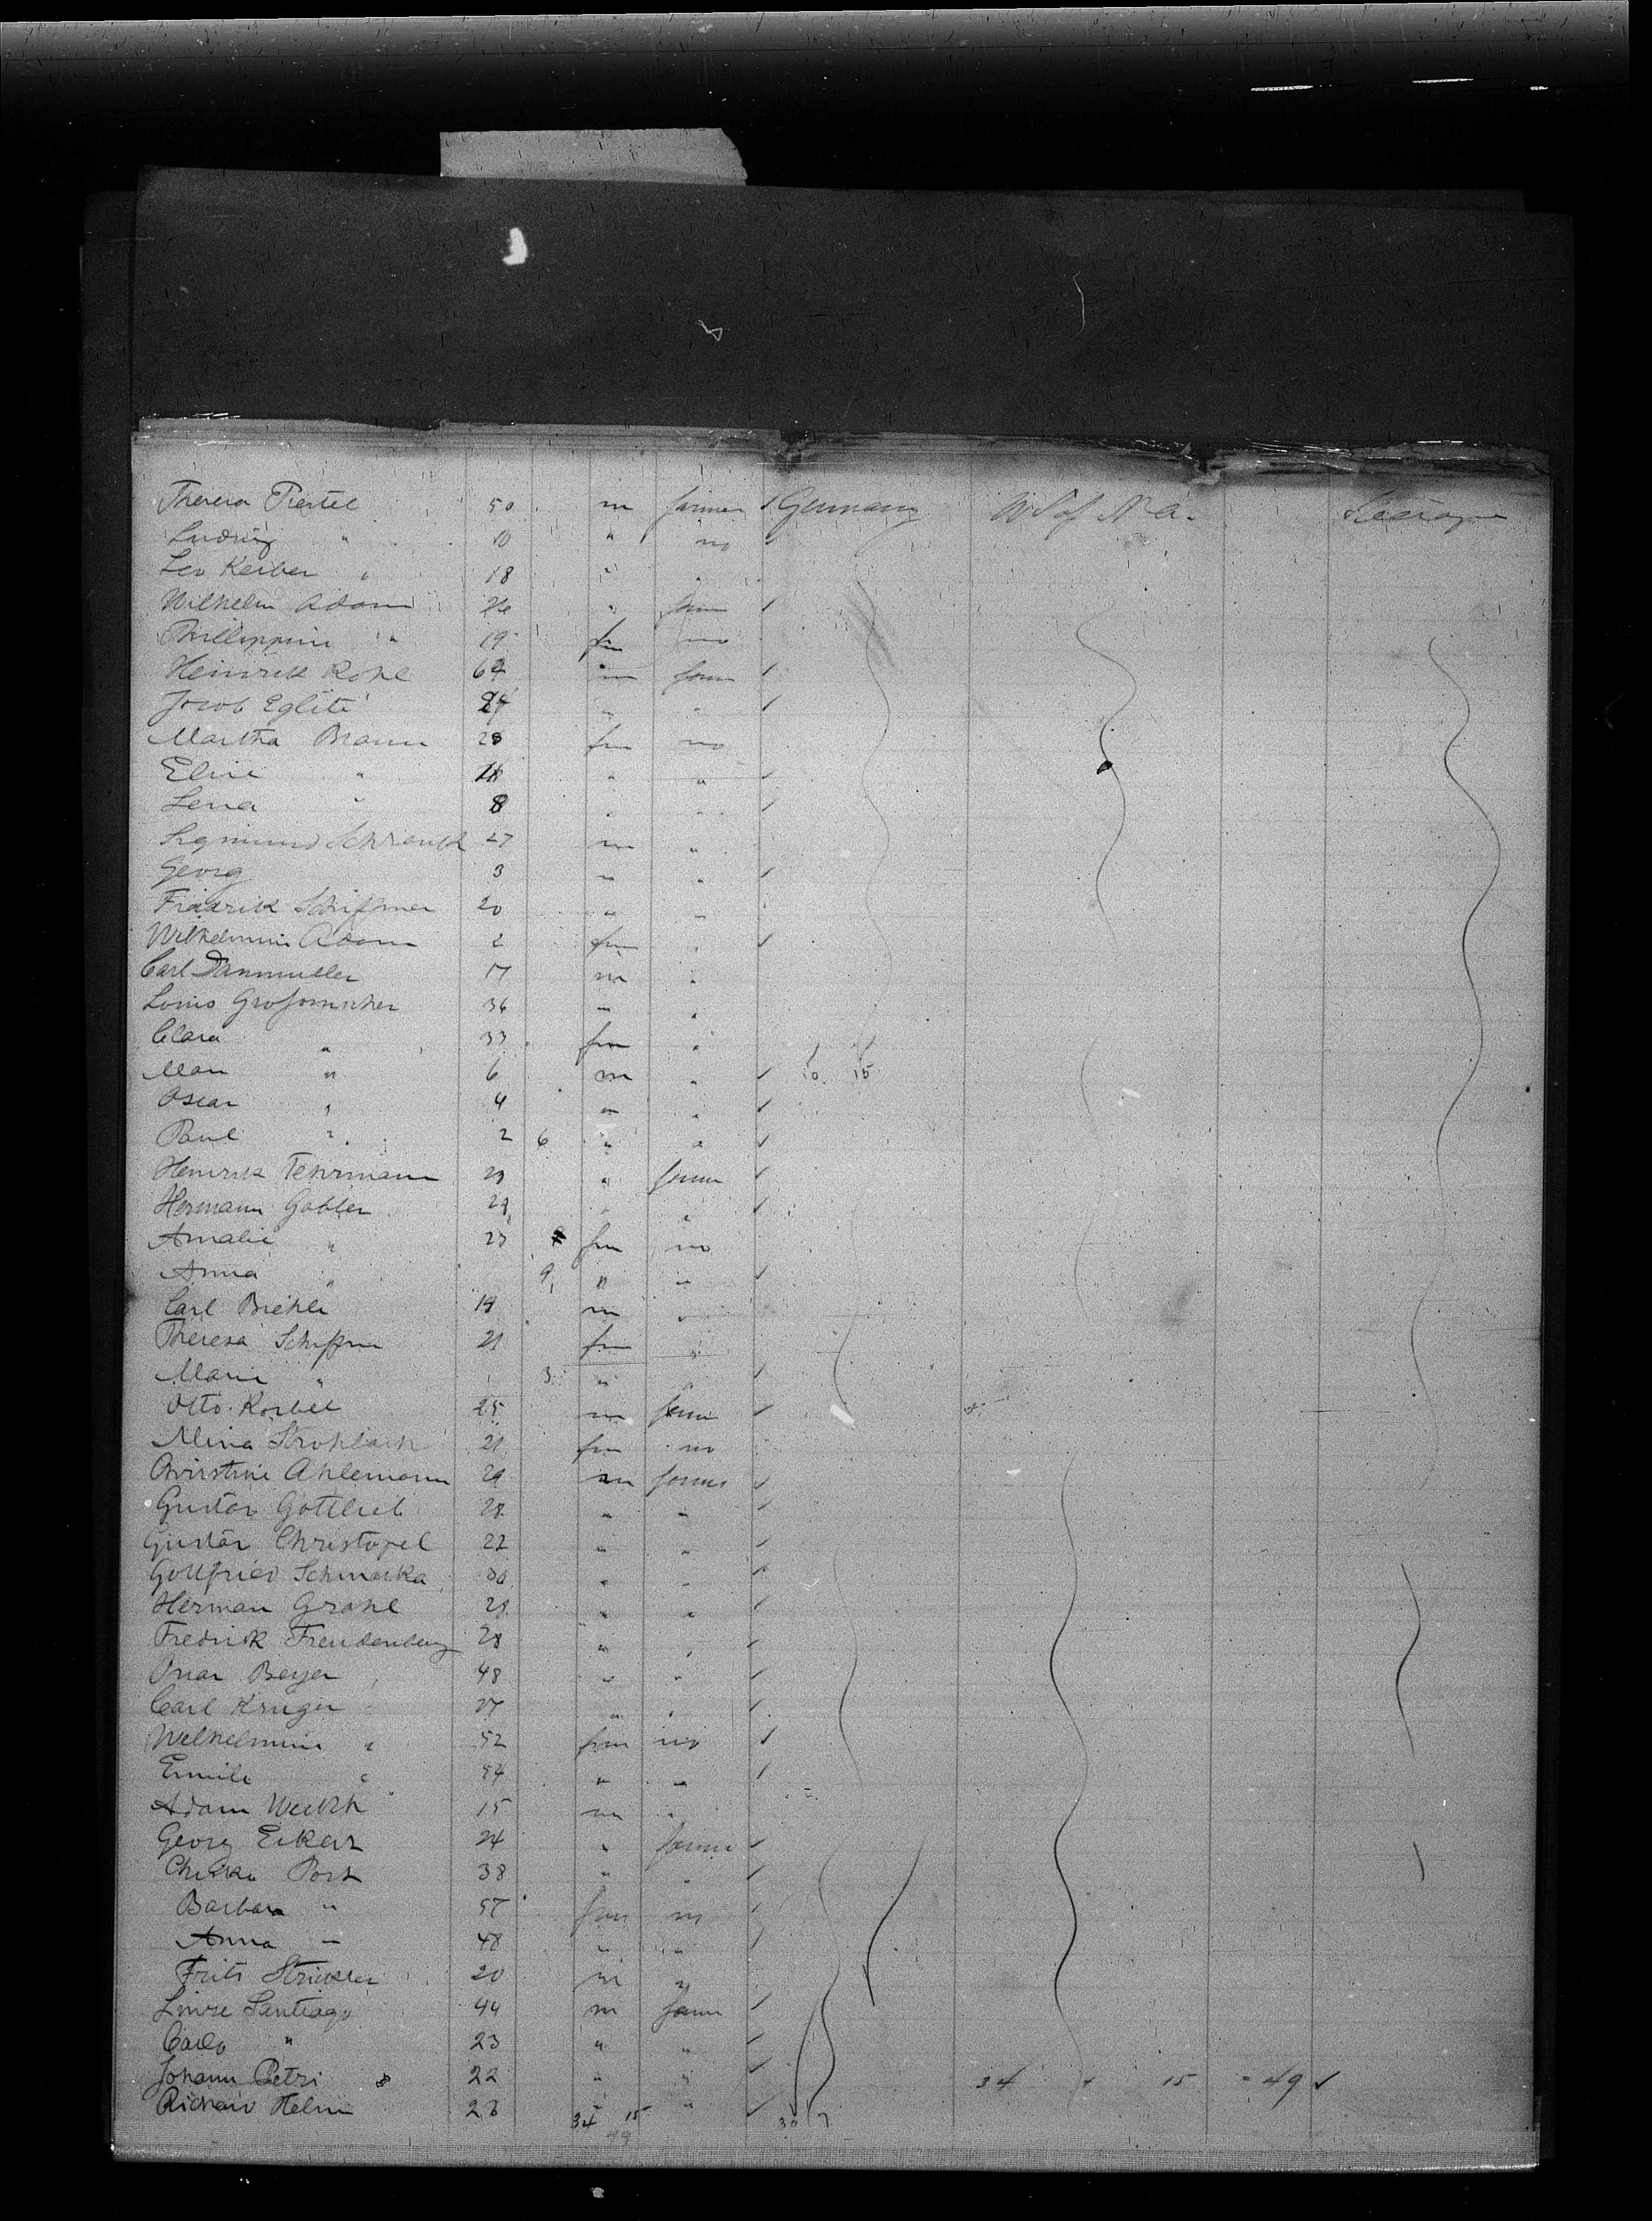 Theresa Tiertel 50 m farmer ✓ Germany U S of N A.
Ludwig " 10 " no
Leo Kerber " 18 " "
Wilhelm Adam 26 " farm ✓
Phillippine " 19 fm no
Heinrik Kohl 64 m farm ✓
Jacob Eglite 24 " " ✓
Martha Braun 28 fm no
Elise " 16 " " ✓
Lena " 8 " " ✓
Sigmund Schrauth 27 m "
Georg 3 " " ✓
Friedrik Schiffner 20 " "
Wilhelmine Adam 2 fm " ✓
Carl Dammuller 17 m "
Louis 36 " "
Clara " 33 fm "
Max " 6 m " ✓ 10 15
Oscar " 4 " " ✓
Paul " 2 6 " " ✓
Henrik Tehrmann 29 " farm ✓
Hermann Gabler 28 " " ✓
Amalie " 23 fm no
Anna " 9 " " ✓
Carl Biehle 19 m "
Theresa Schiffner 21 fm "
Marie " 3 " ✓
Otto Korbel 25 m farm ✓
Mina 21 fm no
Christine Ahlemann 29 m farmer ✓
Gustav Gottlieb 28 " " ✓
Gustav Christopel 22 " " ✓
Gottfried Schmarka 36 " " ✓
Herman Grohl 28 " " ✓
Fredrik Freudenberg 28 " " ✓
Beyer 48 " " ✓
Carl Kruger 27 " " ✓
Wilhelmine " 52 fm no ✓
Emile " 54 " " ✓
Adam 15 m "
Georg Eckert 24 " farm ✓
Port 38 " " ✓
Barbara " 57 fm no ✓
Anna " 48 " " ✓
Frits Strickler 20 m "
Santiago 44 m farm ✓
Carlo " 23 " " ✓
Johann Petri 22 " " ✓ 34 + 15 = 49 ✓
Richard Helm 26 " " ✓
34 15 30 7
49